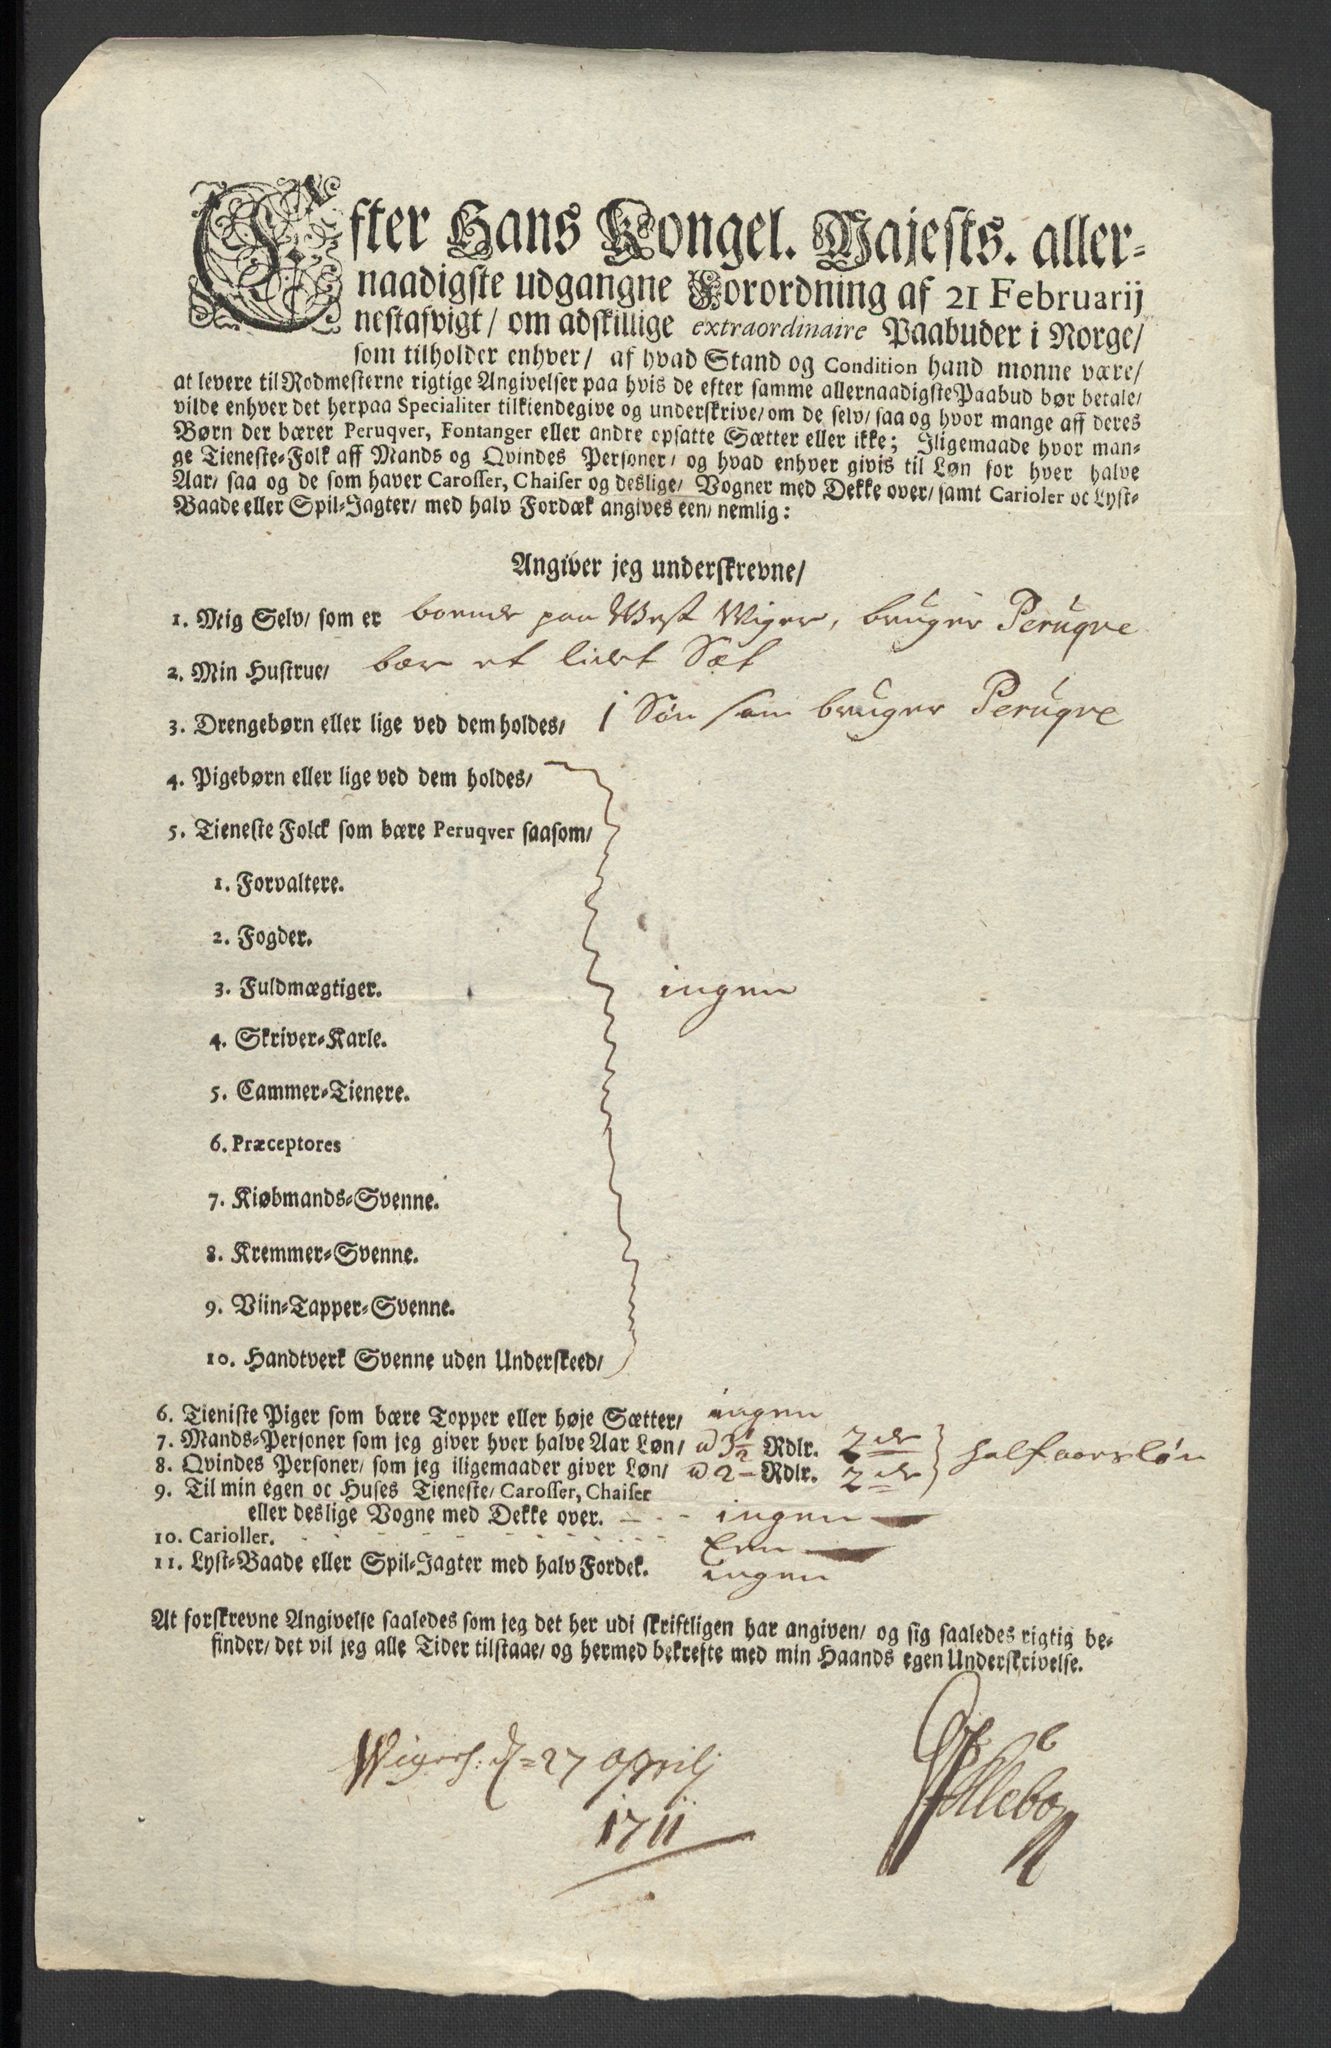 Efter Hans Kongel. Majests. aller-
naadigste udgangne Forordning af 21 Februarij
nestafvigt/ om adskillige extraordinaire Paabuder i Norge/
som tilholder enhver/ af hvad Stand og Condition hand monne være/
at levere til Rodmesterne rigtige Angivelser paa hvis de efter samme allernaadigste Paabud bør betale/
vilde enhver det herpaa Specialiter tilkiendegive og underskrive/ om de selv/ saa og hvor mange aff deres
Børn der bærer Peruqver, Fontanger eller andre opsatte Sætter eller ikke; Iligemaade hvor man-
ge Tieneste-Folk aff Mands og Qvindes Personer/ og hvad enhver givis til Løn for hver halve
Aar/ saa og de som haver Carosser, Chaiser og deslige/ Vogner med Dekke over/ samt Carioler oc Lyst-
Baade eller Spil-Jagter/ med halv Fordæk angives een/ nemlig:
Angiver jeg underskrevne/
1. Mig Selv/ som er boende paa West Wiger, bruger Peruqve
2. Min Hustrue/ bær et lidet Sæt
3. Drengebørn eller lige ved dem holdes/ 1 Søn som bruger Peruqve
4. Pigebørn eller lige ved dem holdes/
5. Tieneste Folck som bære Peruqver saasom/
1. Forvaltere.
2. Fogder.
3. Fuldmægtiger. ingen
4. Skriver-Karle.
5. Cammer-Tienere.
6. Præceptores
7. Kiøbmands-Svenne.
8. Kremmer-Svenne.
9. Viin-Tapper-Svenne.
10. Handtverk Svenne uden Underskeed/
6. Tieniste Piger som bære Topper eller høje Sætter/ ingen
7. Mands-Personer som jeg giver hver halve Aar Løn/ a 3½ Rdlr. 2de } halfaarsløn
8. Qvindes Personer/ som jeg iligemaader giver Løn/ a 2 Rdlr. 2de
9. Til min egen oc Huses Tieneste/ Carosser, Chaiser
eller deslige Vogne med Dekke over. ingen
10. Carioller. Een
11. Lyst-Baade eller Spil-Jagter med halv Fordek. ingen
At forskrevne Angivelse saaledes som jeg det her udi skriftligen har angiven/ og sig saaledes rigtig be-
finder/ det vil jeg alle Tider tilstaae/ og hermed bekrefte med min Haands egen Underskrivelse.
27 Aprilj
1711